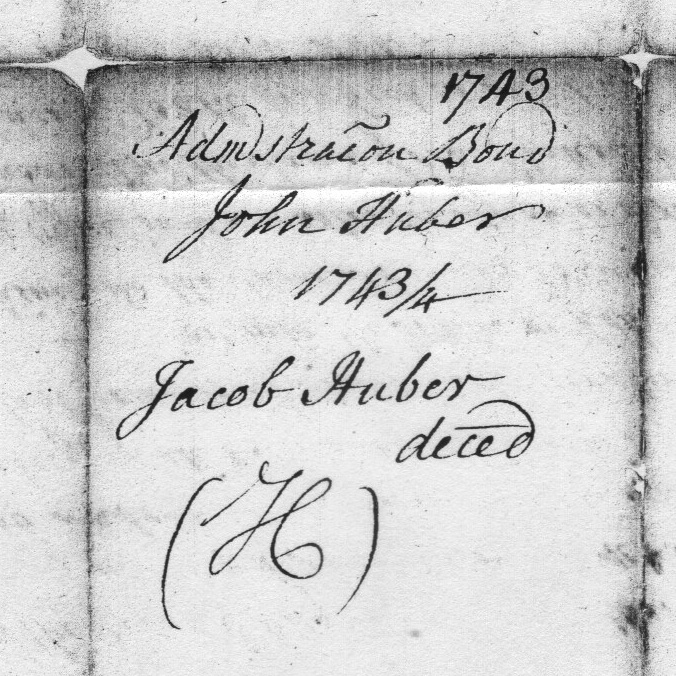 1743
Admstraĉon Bond
John Huber
1743/4
Jacob Huber
deced
(H)